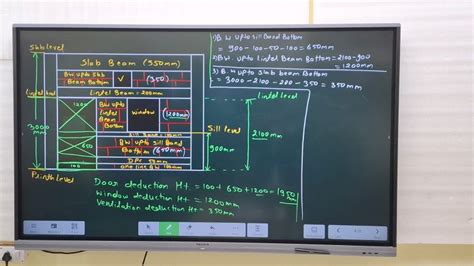 Slab level
Slab Beam (550mm)
BW upto Slab
Beam Bottom
V
(350)
Lintel level
Lintel Beam = 200mm
1200
BW upto
Lintel
Beam
Bottom
Window
(1200mm)
3000mm
650
BW upto Sill Band
Bottom (650mm)
DPC 50mm
100
One line BW 100mm
Plinth Level
Lintel level
Sill level
2100mm
900mm
1) B.W upto Sill Band Bottom
= 900-100-50-100 = 650mm
2) BW upto Lintel Beam Bottom = 2100-900
= 1200mm
3) B.W upto Slab beam Bottom
= 3000-2100-200-350 = 350mm
Door deduction Ht = 100 + 650 + 1200 = 1950mm
Window deduction Ht = 1200mm
Ventilation deduction Ht = 350mm